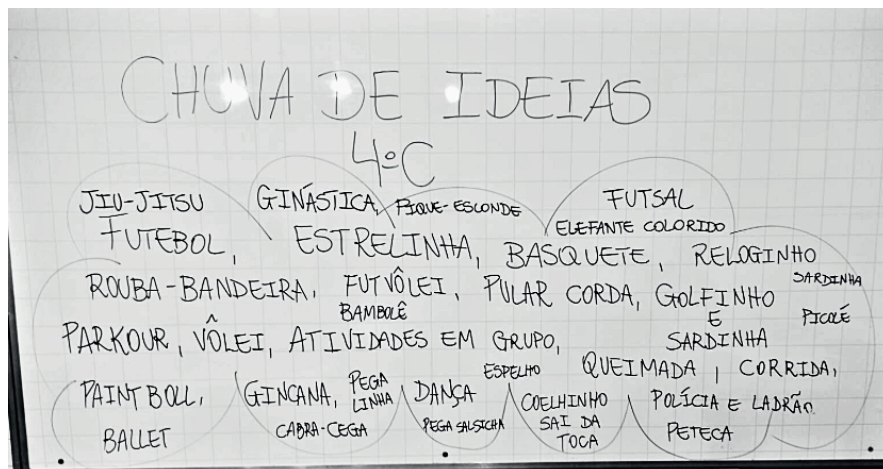 CHUVA DE IDEIAS
4ºC
JIU-JITSU GINÁSTICA, PIQUE-ESCONDE FUTSAL
ELEFANTE COLORIDO
FUTEBOL, ESTRELINHA, BASQUETE, RELOGINHO
SARDINHA
ROUBA-BANDEIRA, FUTVÔLEI, PULAR CORDA, GOLFINHO
BAMBOLÊ E PICOLÉ
PARKOUR, VÔLEI, ATIVIDADES EM GRUPO, SARDINHA
ESPELHO QUEIMADA, CORRIDA,
PAINTBOLL, GINCANA, PEGA LINHA DANÇA COELHINHO POLÍCIA E LADRÃO
BALLET CABRA-CEGA PEGA SALSICHA SAI DA PETECA
TOCA